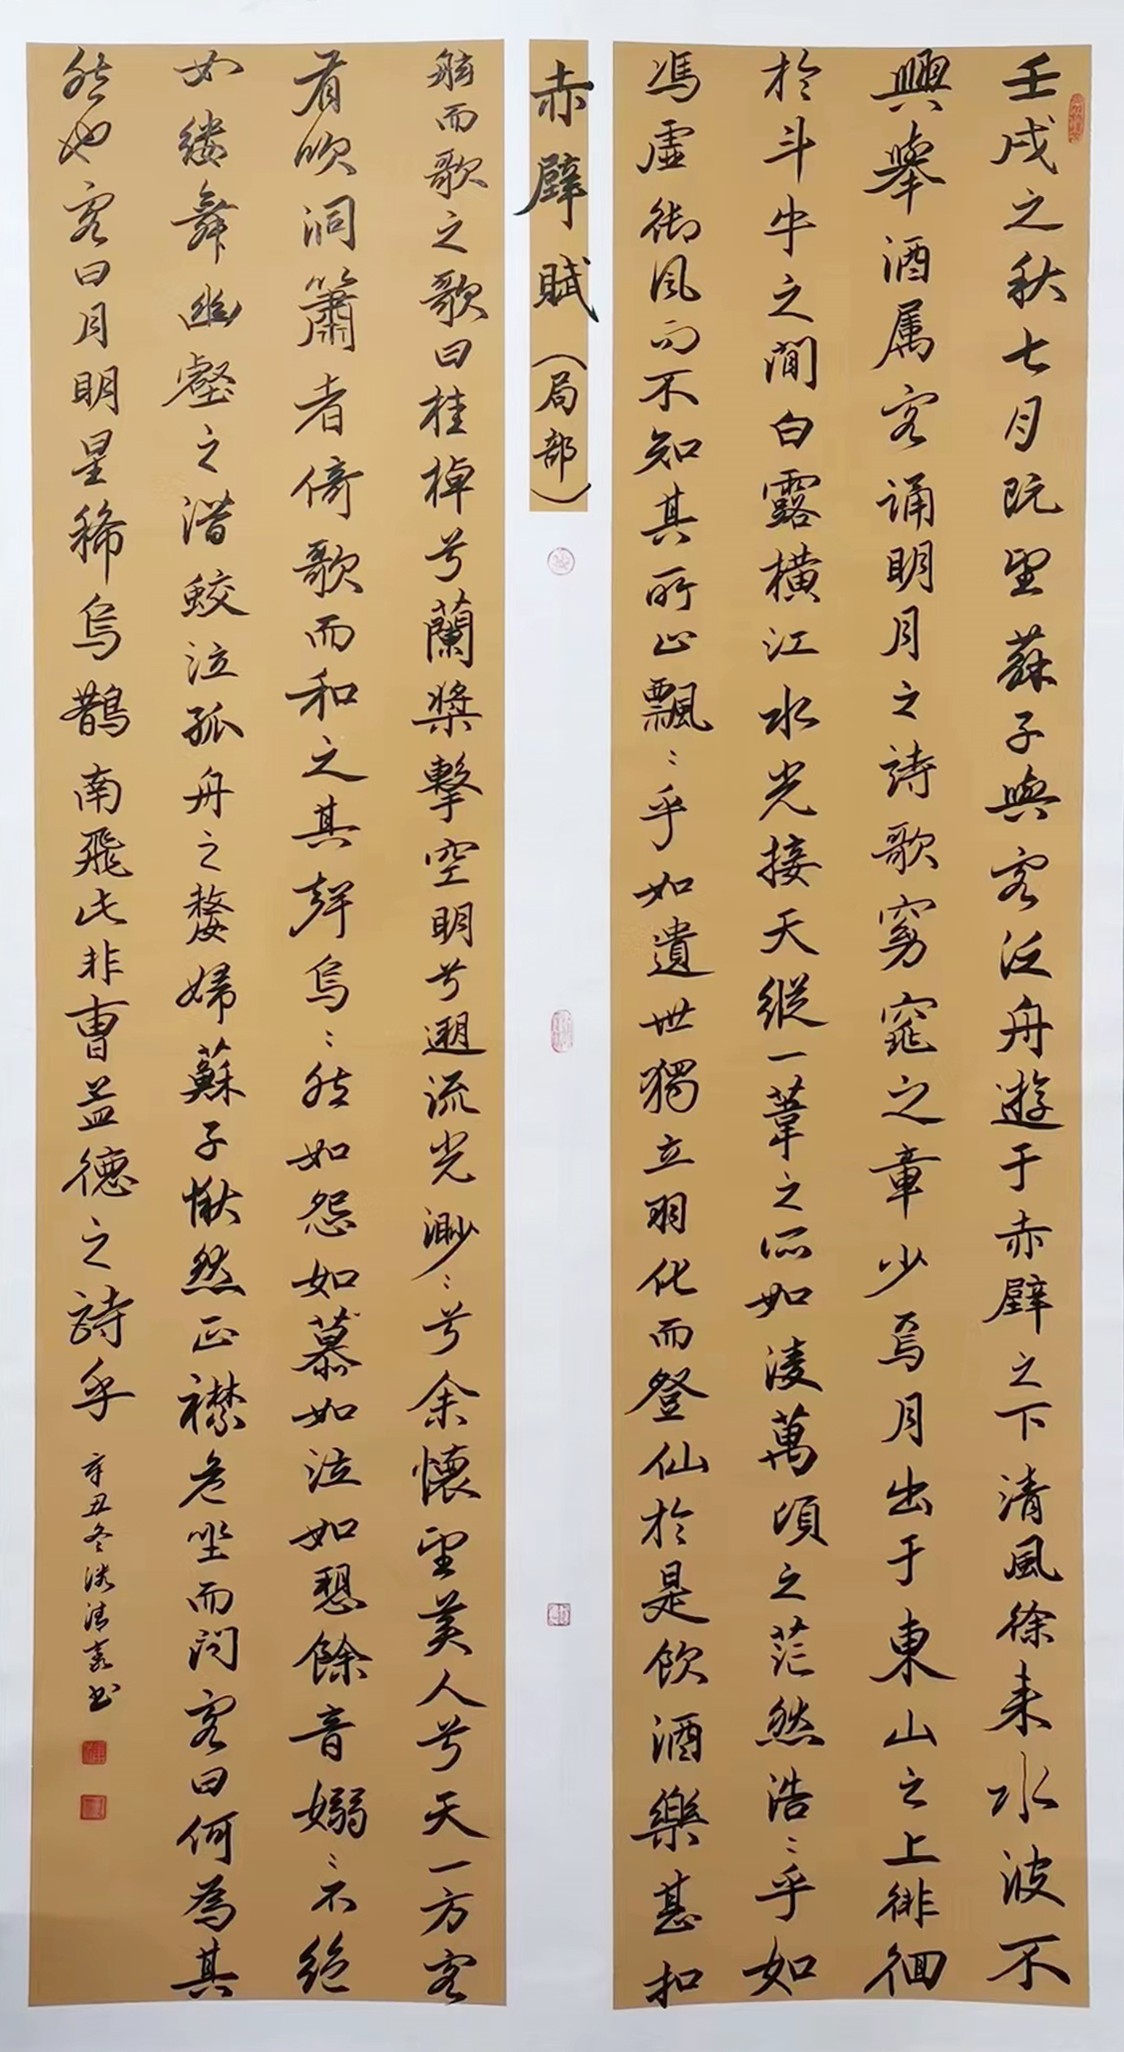 赤壁賦（局部）
壬戌之秋七月既望蘇子與客泛舟遊于赤壁之下清風徐来水波不
興舉酒属客诵明月之詩歌窈窕之章少焉月出于東山之上徘徊
於斗牛之間白露橫江水光接天縱一葦之所如淩萬頃之茫然浩〻乎如
馮虚御風而不知其所止飄〻乎如遺世獨立羽化而登仙於是飲酒樂甚扣
舷而歌之歌曰桂棹兮蘭槳擊空明兮遡流光渺〻兮余懷望美人兮天一方客
有吹洞簫者倚歌而和之其聲烏〻然如怨如慕如泣如愬餘音嫋〻不絕
如縷舞幽壑之潛鲛泣孤舟之嫠婦蘇子愀然正襟危坐而問客曰何為其
然也客曰月明星稀烏鵲南飛此非曹益德之詩乎
辛丑冬清書